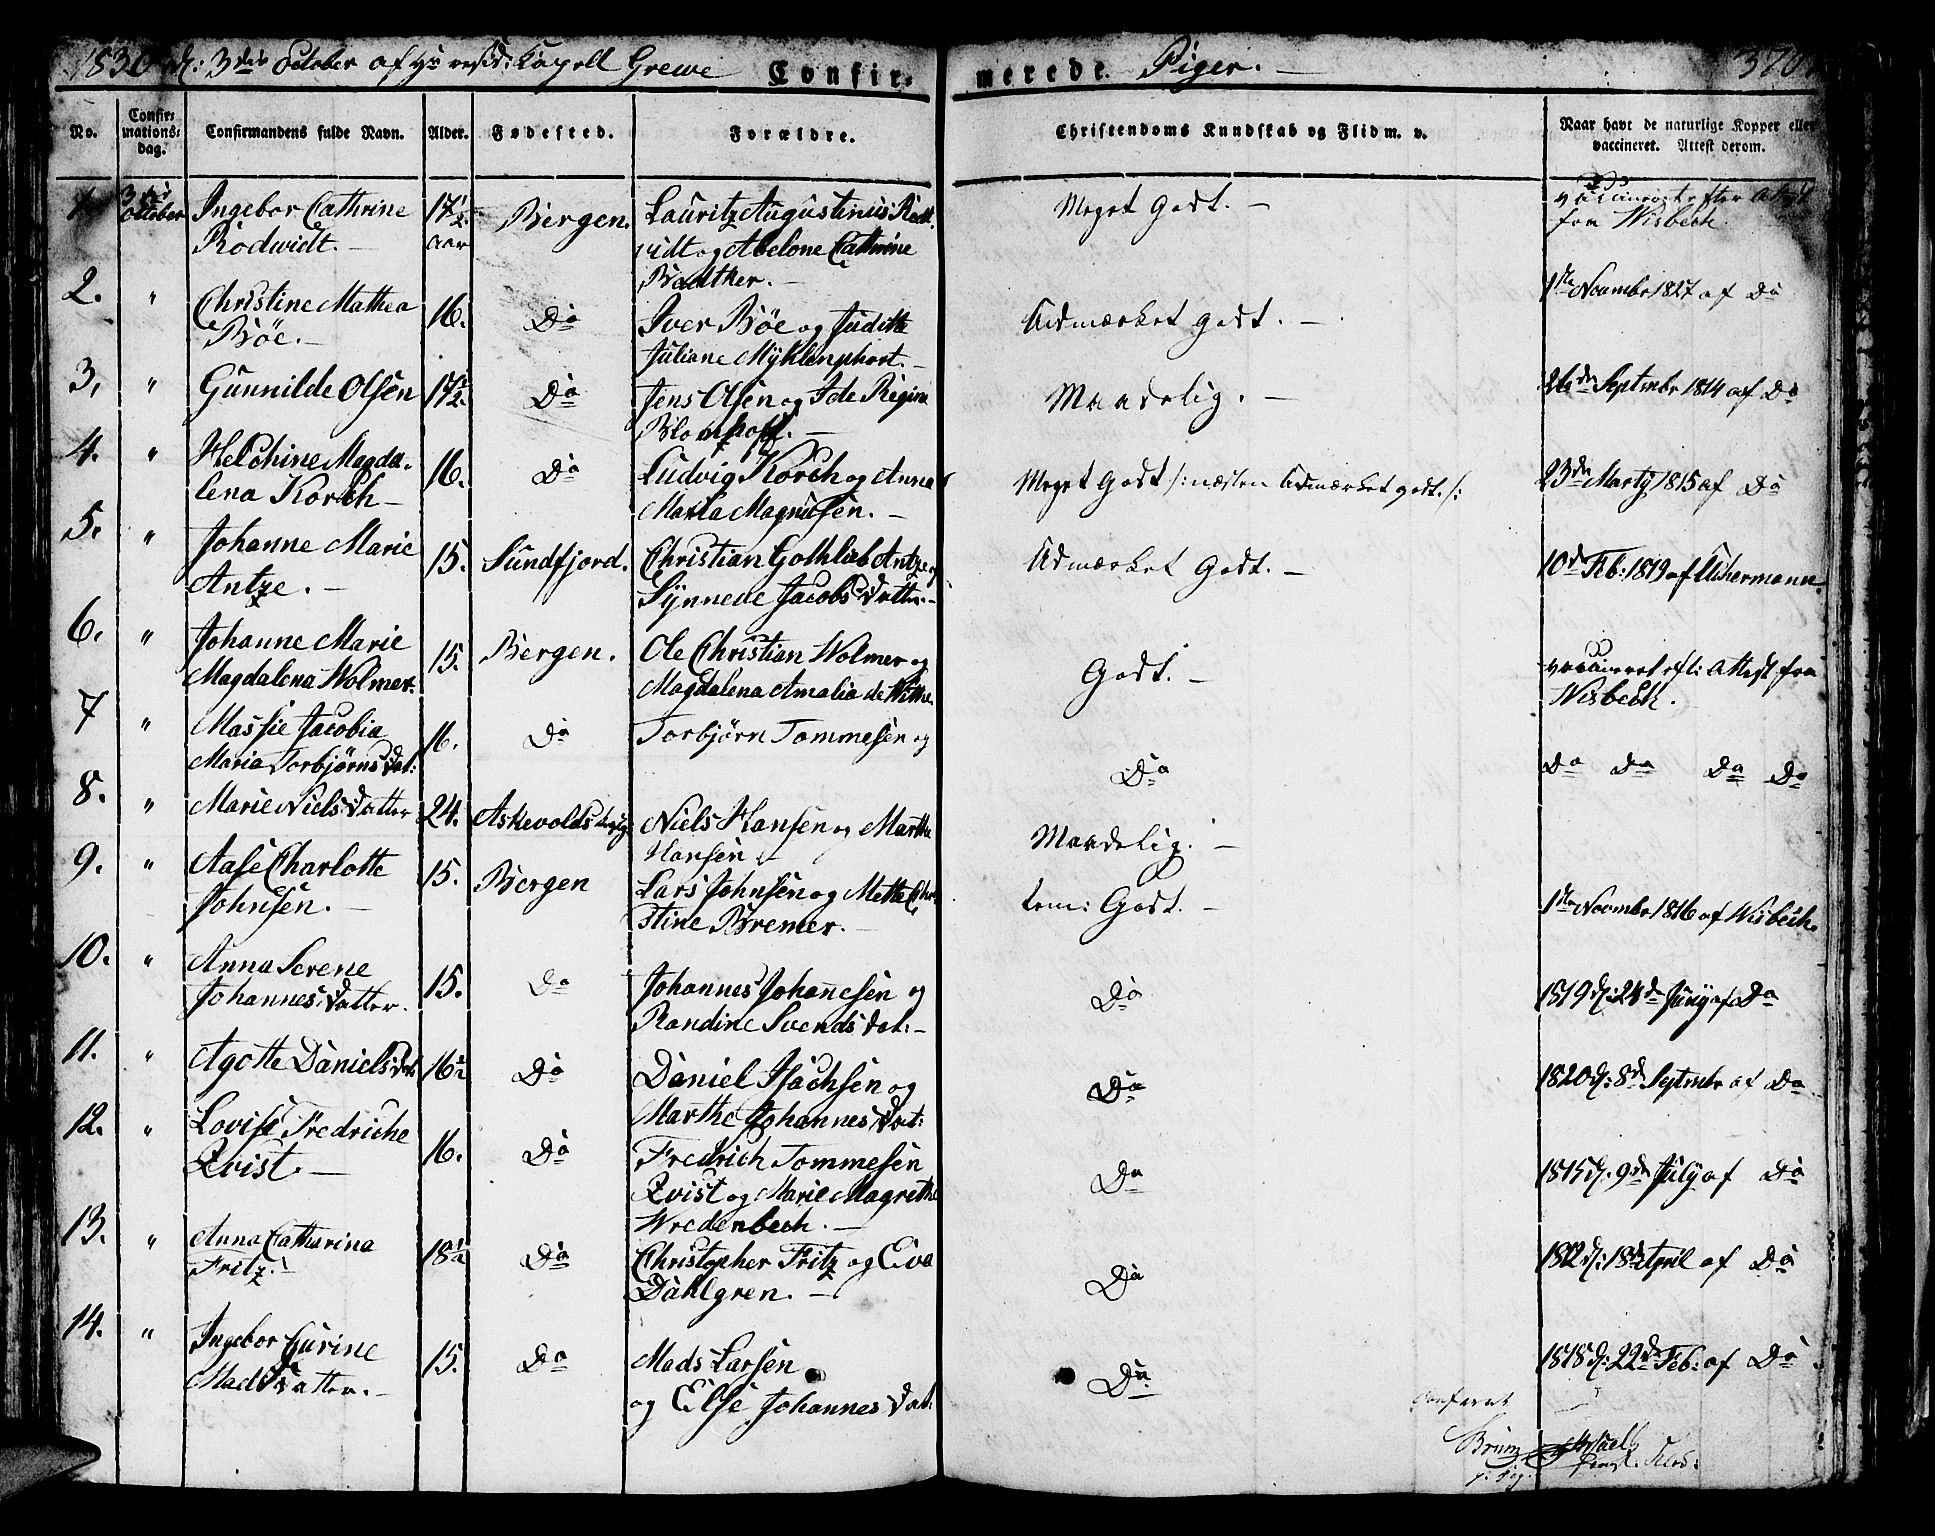 1830 d: 3die October af Hr resid: Capell Grewe Confirmerede Piger. 370
No. Confirmationsdag. Confirmandens fulde Navn. Alder. Fødested. Forældre. Christendoms Kundskab og Flid m. v. Naar havt de naturlige Kopper eller vaccineret. Attest derom.
1. 3die October Ingebor Cathrine Rodwidt. 17 1/2 aar Bergen. Lauritz Augustinus Rodtvidt og Abelone Cathrine Bradtker. Meget Godt. vaccineret efter Attest fra Wisbech.
2. " Christine Mathea Böe. 16. Do Iver Böe og Judithe Juliane Myklenphort. Udmærket godt. 1te Novembr 1827 af Do
3, " Gunnilde Olsen 17 1/2. Do Jens Olsen og Ide Regine Blomhoff. Maadelig. 26de Septmbr 1814 af Do
4. " Helchine Magdalena Korch 16. Do Ludvig Korch og Anna Maria Magnusen. Meget Godt /: næsten Udmærket godt. /: 23de Marty 1815 af Do
5. " Johanne Marie Antze. 15. Sundfjord. Christian Gothlieb Antze og Synneve Jacobs Datter. Udmærket Godt. 10de Feb: 1819 af Uchermann.
6. " Johanne Marie Magdalena Wolmer. 15. Bergen. Ole Christian Wolmer og Magdalena Amalia de Witthe Godt. vaccineret eft: Attest fra Wisbech.
7 " Massie Jacobia Maria Torbjørns Dat: 16. Do Torbjørn Tommesen og Do Do Do Do Do
8. " Marie Niels Datter 24. Askevolds Niels Hansen og Marthe Hansen Maadelig.
9. " Aase Charlotte Johnsen. 15. Bergen Lars Johnsen og Mette Christine Bremer. tem: Godt. 1te Novmbr 1816 af Wisbech.
10. " Anna Serene Johannes Datter. 15. Do Johannes Johanesen og Randine Svends Dat: Do 1819 d: 24de Juny af Do
11. " Agotte Daniels Dat 16 1/2 Do Daniel Isachsen og Marthe Johannes Dat: Do 1820 d: 8de Septmbr af Do
12. " Lovise Fredriche Qvist. 16. Do Fredrich Tommesen Qvist og Marie Magrethe Wredenbech. Do 1815 d: 9de July af Do
13. " Anna Catharina Fritz. 18 1/2 Do Christopher Fritz og Eva Dahlgren. Do 1812 d: 18de April af Do
14. " Ingebor Gurine Mads Datter. 15. Do Mads Larsen og Else Johannes Dat: Do 1818 d: 22de Feb: af Do
Confereret
Bruun